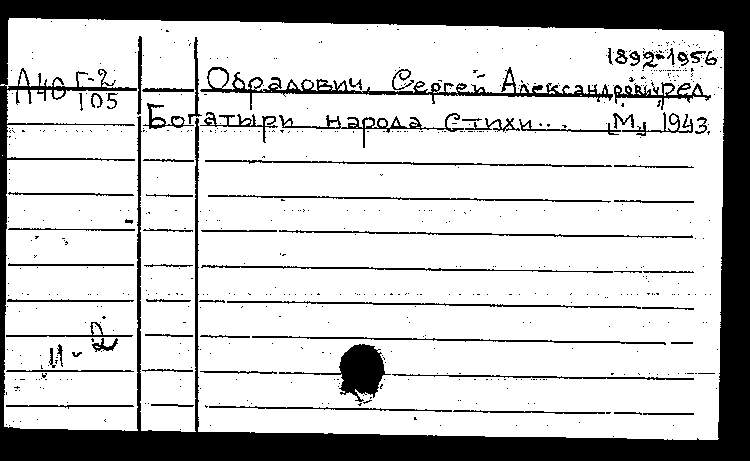 1892-1956
Л40 Г-2 Обрадович, Сергей Александрович, ред.
105
Богатыри народа Стихи... [М.] 1943.